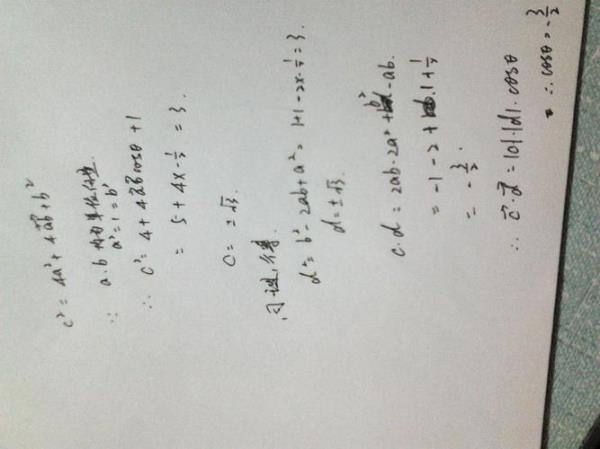 c² = 4a² + 4ab + b²
∵ a.b 均为单位向量.
a² = 1 = b²
∴ c² = 4 + 4ab cosθ + 1
= 5 + 4× -½ = 3.
c = ±√3.
同理,得.
d² = b² - 2ab + a² = 1+1 - 2×-½ = 3.
d = ±√3.
c·d = 2ab - 2a² + b² - ab.
= -1 - 2 + 1 + ½
= -3/2.
∴ c⃗·d⃗ = |c|·|d|·cosθ
∴ cosθ = -3/2